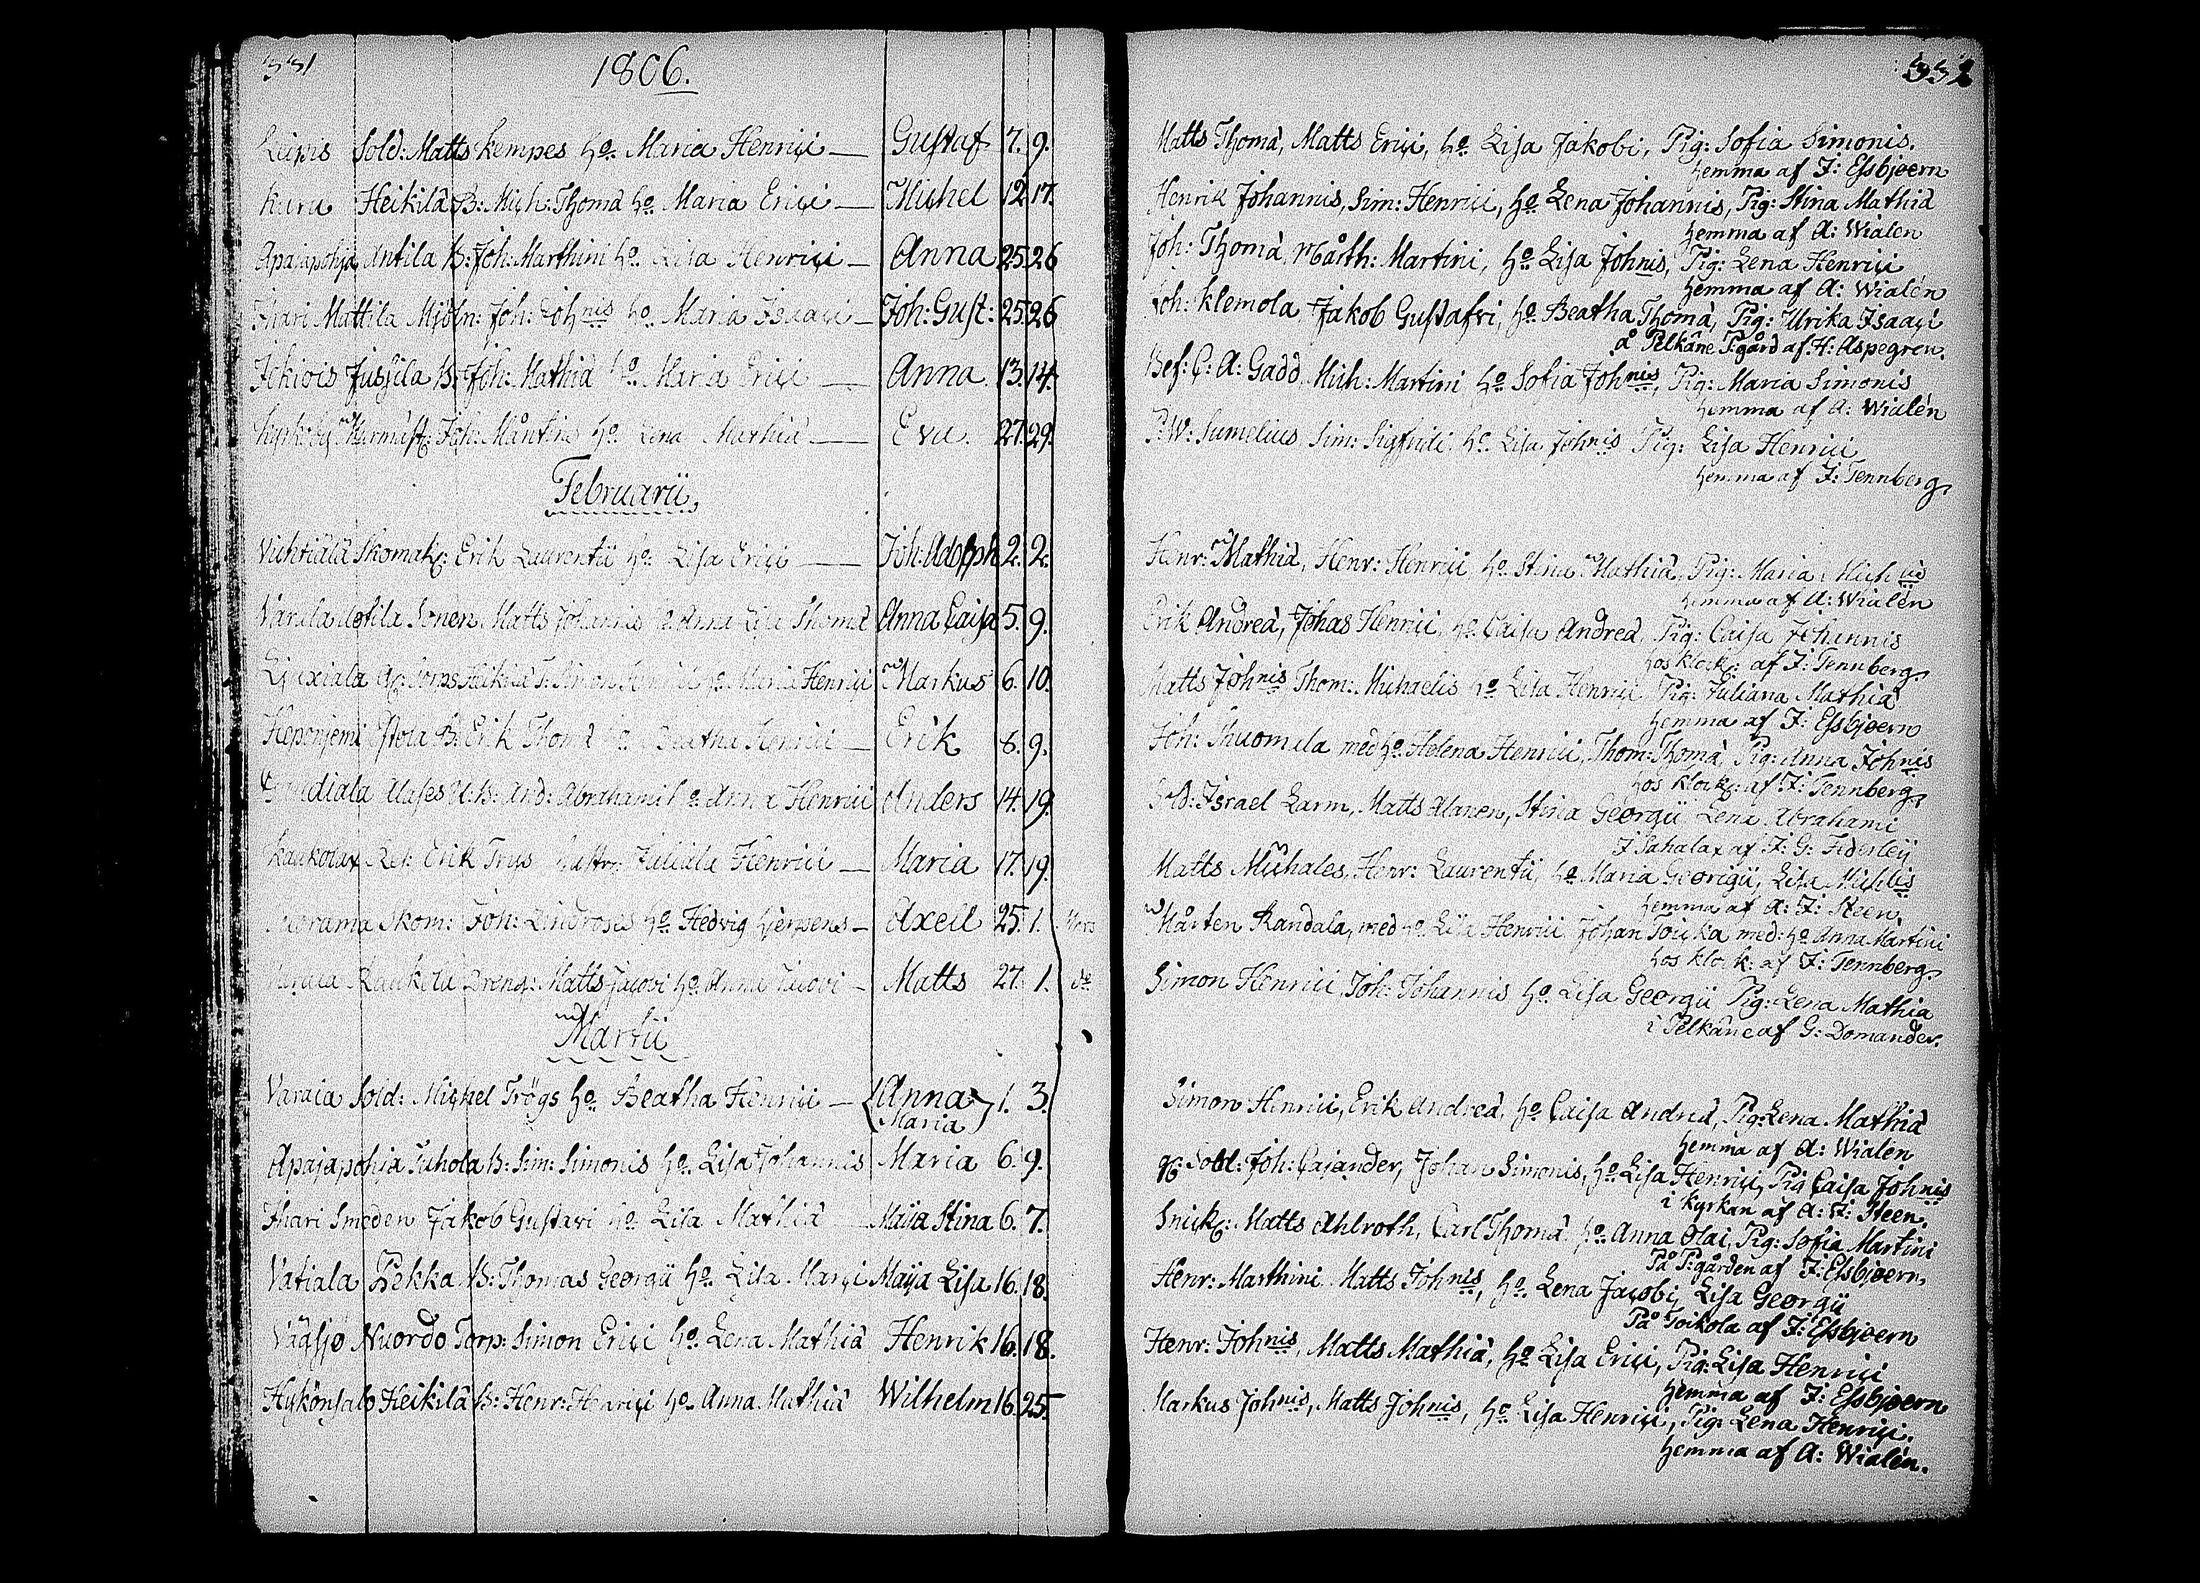 331
1806.
Lujois Sold: Matts Kempes ho. Maria Henrici — Gustaf 7. 9.
Kuru Heikilä B: Mich: Thomæ ho Maria Erici — Michel 12 17.
Apajapohja Antila B: Joh: Marthini ho Lisa Henrici — Anna 25. 26
Ihari Mattila Mjöln: Joh: Johnis ho Maria Isaaci — Joh: Gust: 25. 26
Jussila B: Joh: Mathiä ho Maria Erici — Anna 13. 14.
Joh: Mårtins ho. Lena Mathiä — Eva. 27. 29.
Februarii
Vichtiälä Skomak: Erik Laurentii ho Lisa Erici — Joh: Adolph 2. 2.
Sonen Matts Johannis Anna Lisa Thomä Anna Caisa 5. 9.
Simon ho Maria Henrici Markus 6. 10.
B: Erik Thomæ ho Beatha Henrici — Erik 8. 9.
And: Abrahami ho Anna Henrici Anders 14. 19.
Erik Trys hustr: Juliäla Henrici — Maria 17. 19.
Skom: Joh: Lindroses ho Hedvig — Axell 25. 1. Mars
Kaukola Dreng: Matts Jacobi ho Anna Jacobi — Matts 27. 1. do
Martii
Varala Sold: Michel Trögs ho Beatha Henrici — Anna Maria 1. 3.
Apajapohja Juhola B: Sim: Simonis ho. Lisa Johannis Maria 6. 9.
Ihari Smeden Jakob Gustavi ho. Lisa Mathiä — Maija Stina 6. 7.
Vatiala Pekka B: Thomas Georgii ho. Lisa Marci Maija Lisa 16. 18.
Vägsjö Nuordo Torp: Simon Erici ho. Lena Mathiä Henrik 16. 18.
Heikilä B: Henr: Henrici ho. Anna Mathiä Wilhelm 16. 25.
332
Matts Thomä, Matts Erici, ho Lisa Jakobi, Pig: Sofia Simonis.
hemma af J: Essbjoern
Henrik Johannis, Sim: Henrici, ho Lena Johannis, Pig: Stina Mathiä
hemma af A: Wialén
Joh: Thomä, Mårth: Martini, ho Lisa Johnis, Pig: Lena Henrici
hemma af A: Wialén
Joh: Klemola Jakob Gustafvi, ho Beatha Thomä, Pig: Ulrika Isaaci
å Pelkäne P:gård af H: Aspegren.
Bef: C: A: Gadd, Mich: Martini ho Sofia Johnis, Pig: Maria Simonis
hemma af A: Wialén
P: W: Sumelius Sim: Sigfridi ho Lisa Johnis Pig: Lisa Henrici
hemma af J: Tennberg.
Henr: Mathiä, Henr: Henrici ho Stina Mathiä, Pig: Maria Michlis
hemma af A: Wialén
Erik Andreä, Johas Henrici, ho Caisa Andreä, Pig: Caisa Johannis
hos klock: af J: Tennberg.
Matts Johnis Thom: Michaelis ho Lisa Henrici Pig: Juliana Mathiä
hemma af J: Essbjoern
Joh: Thuomela med ho Helena Henrici, Thom: Thomä Pig: Anna Johnis
hos klock: af J: Tennberg.
Sold: Israel Larm, Matts Alanen, Stina Georgii Lena Abrahami
i Sahalax af J: G: Fiderleij
Matts Michales, Henr: Laurentii, ho Maria Georgii, Lisa Michlis
hemma af A: J: Steen.
Mårten Randala, med ho Lisa Henrici Johan Toicka med ho Anna Martini
hos klock: af J: Tennberg.
Simon Henrici, Joh: Johannis ho. Lisa Georgii Pig: Lena Mathiä
i Pelkäne af G: Domander.
Simon Henrici, Erik Andreä, ho Caisa Andreä, Pig: Lena Mathiä
hemma af A: Wialén
Sold: Joh: Cajander, Johan Simonis, ho Lisa Henrici, Pig Caisa Johnis
i kyrkan af A: J: Steen.
Snick: Matts Ahlroth, Carl Thomä, ho. Anna Olai, Pig: Sofia Martini
På P:gården af J: Essbjoern,
Henr: Marthini Matts Johnis, ho Lena Jacobi, Lisa Georgii
På Toikola af J: Essbjoern
Henr: Johnis, Matts Mathiä, ho Lisa Erici, Pig: Lisa Henrici
hemma af J: Essbjoern
Markus Johnis, Matts Johnis, ho Lisa Henrici, Pig: Lena Henrici.
hemma af A: Wialén.